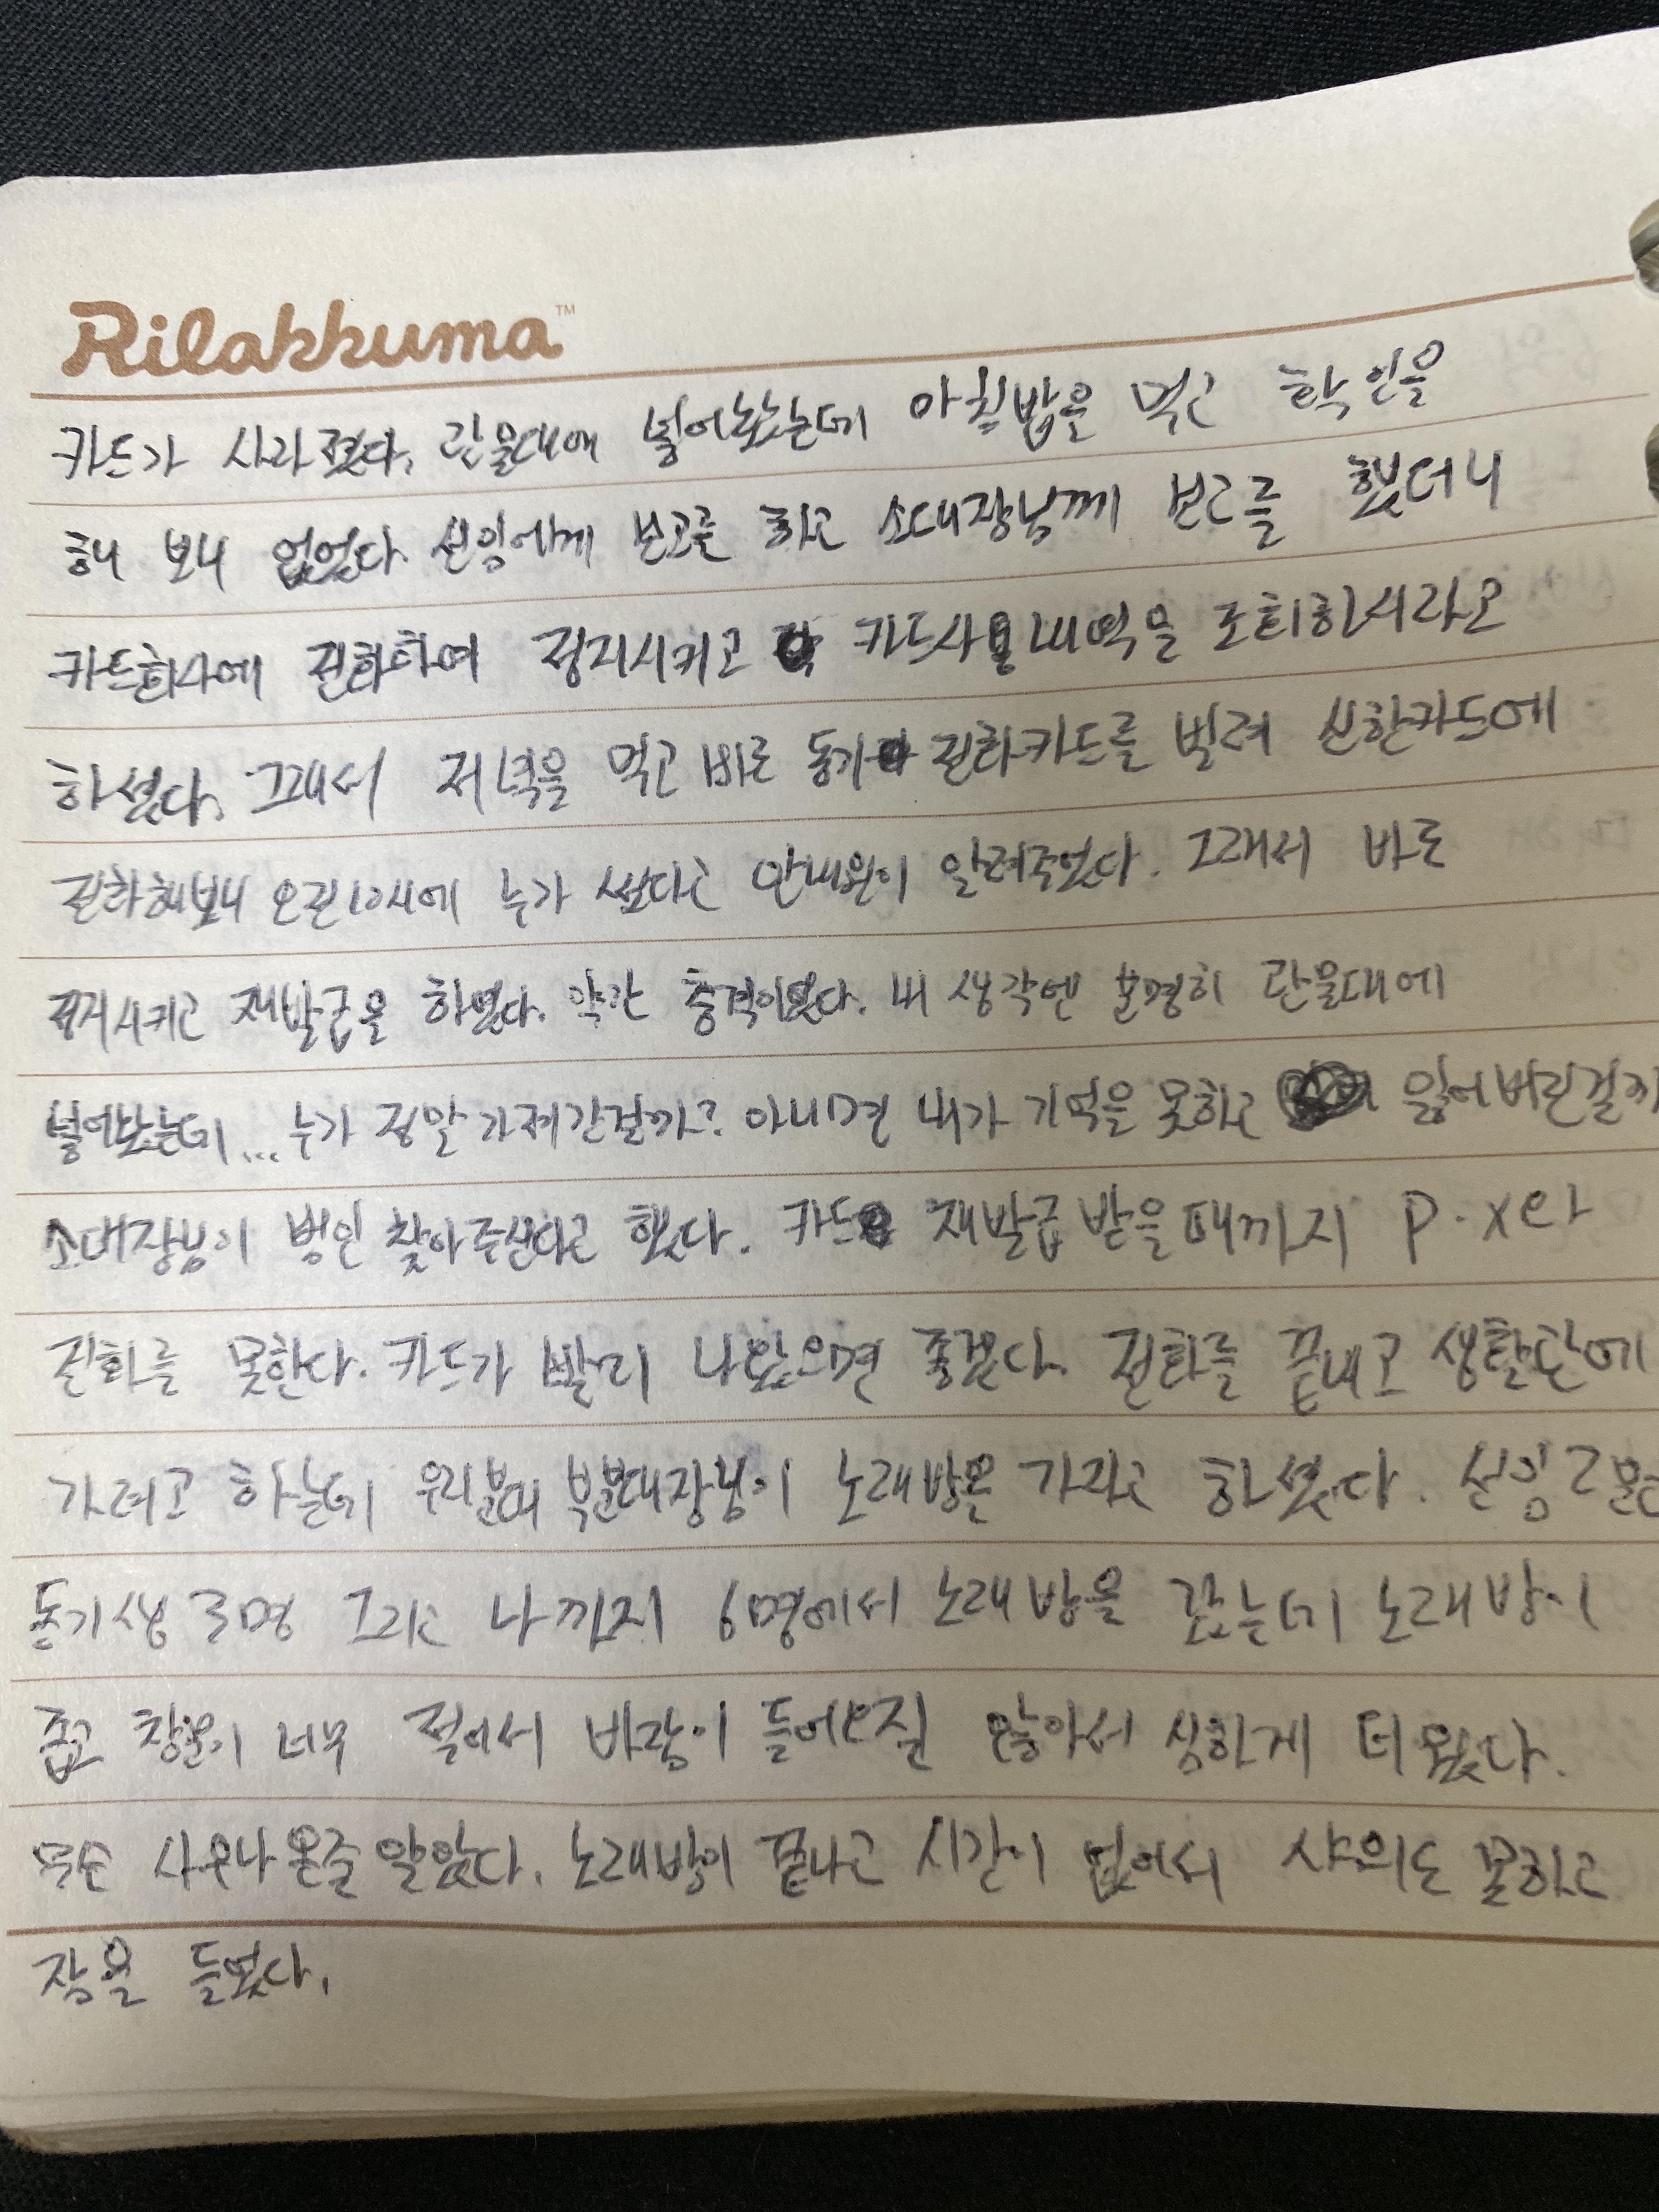 Rilakkuma™
카드가 사라졌다. 관물대에 넣어놨는데 아침밥을 먹고 확인을
해 보니 없었다. 선임에게 보고를 하고 소대장님께 보고를 했더니
카드회사에 전화하여 정지시키고 카드사용내역을 조회하시라고
하셨다. 그래서 저녁을 먹고 바로 동기 전화카드를 빌려 신한카드에
전화해보니 오전10시에 누가 썼다고 안내원이 알려주었다. 그래서 바로
정지시키고 재발급을 하였다. 약간 충격이였다. 내 생각엔 분명히 관물대에
넣어놨는데... 누가 정말 가져간걸까? 아니면 내가 기억을 못하고 잃어버린걸까
소대장님이 범인 찾아주신다고 했다. 카드 재발급 받을때까지 P.X랑
전화를 못한다. 카드가 빨리 나왔으면 좋겠다. 전화를 끝내고 생활관에
가려고 하는데 우리분대 부분대장님이 노래방을 가자고 하셨다. 선임
동기생 3명 그리고 나까지 6명에서 노래방을 갔는데 노래방이
좁고 창문이 너무 적어서 바람이 들어오질 않아서 심하게 더웠다.
무슨 사우나 온줄 알았다. 노래방이 끝나고 시간이 없어서 샤워도 못하고
잠을 들었다.